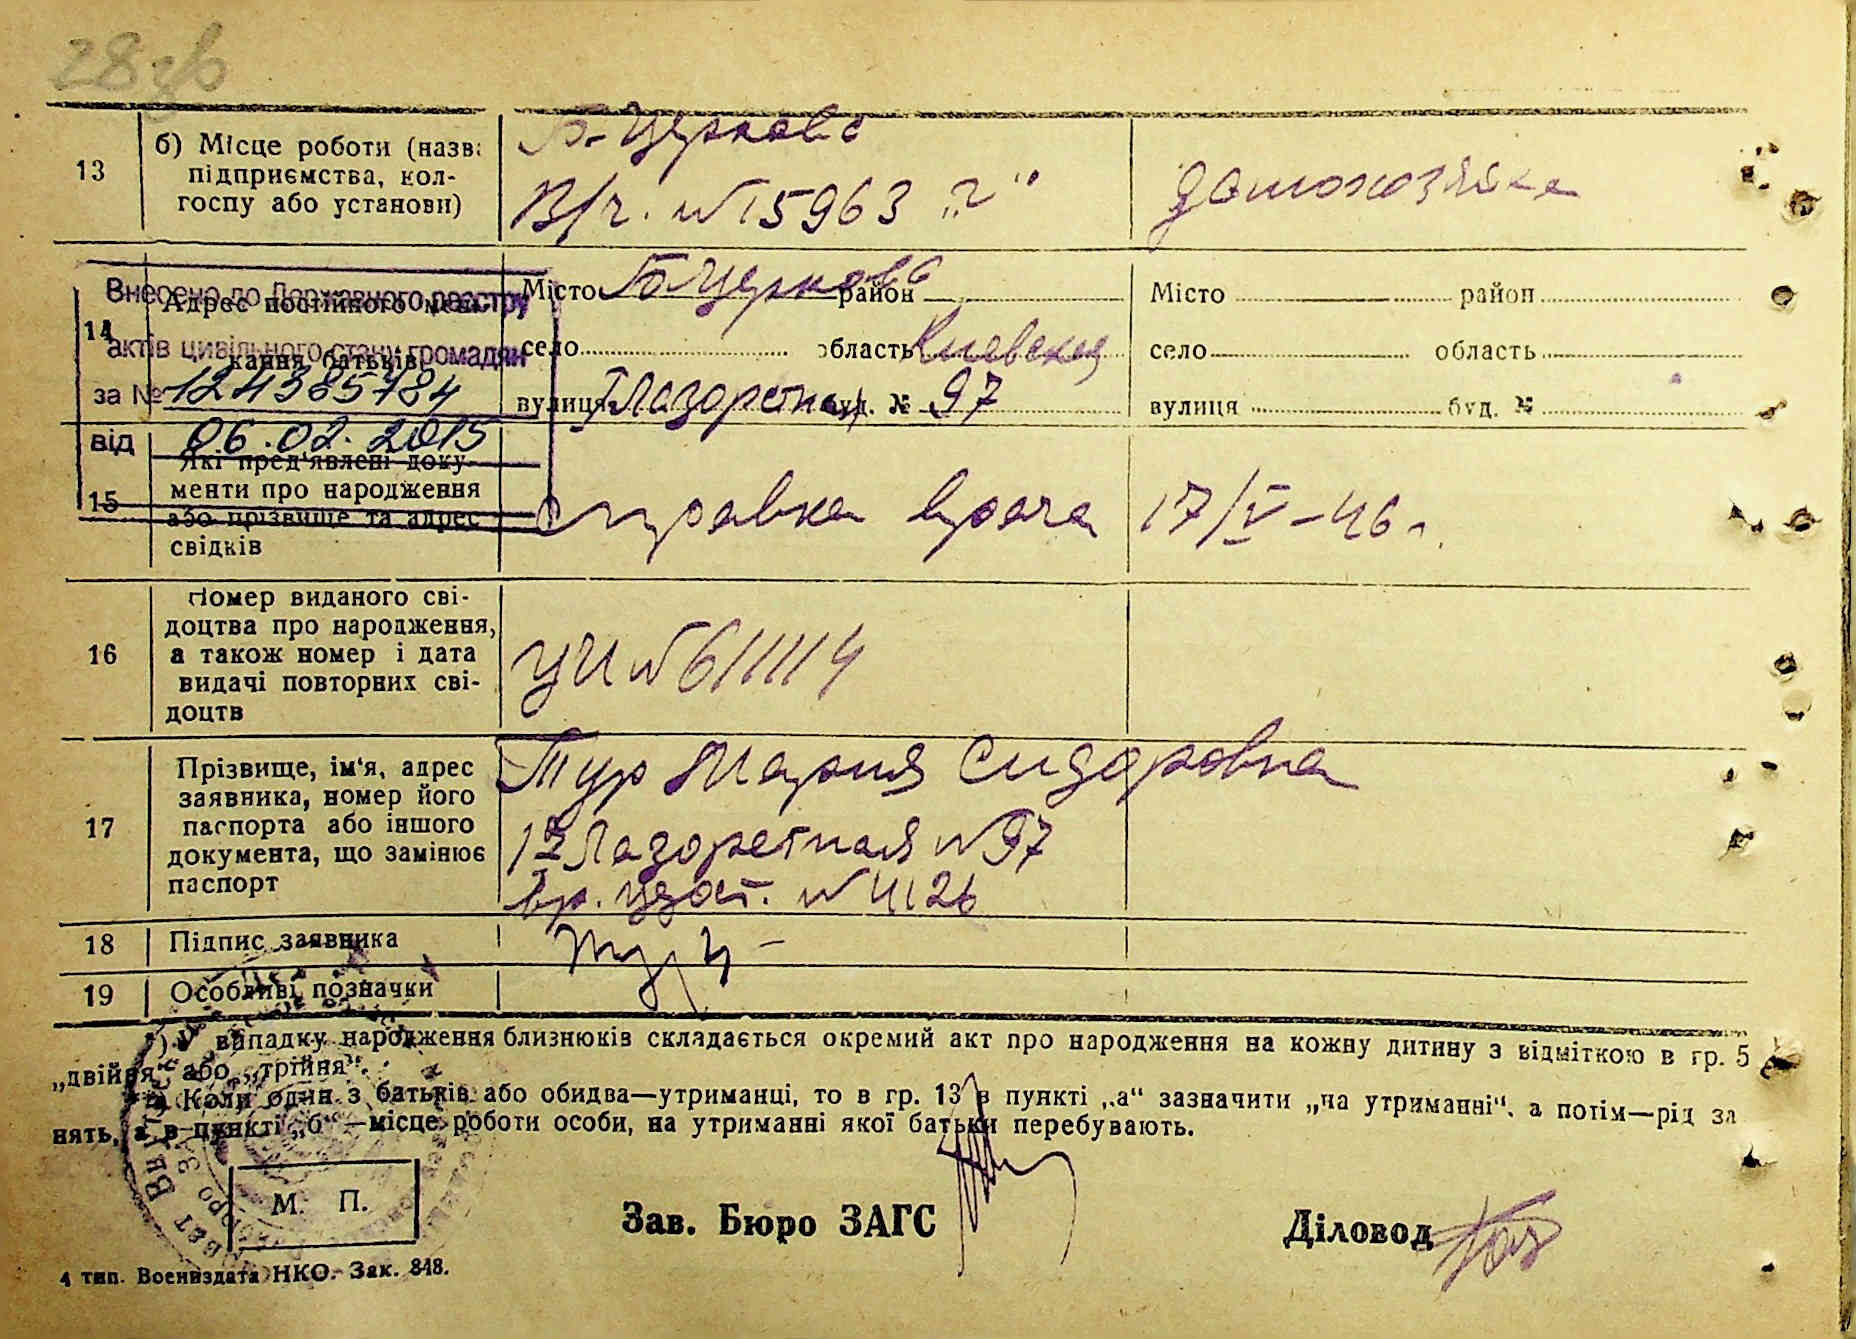 28 зв
13
б) Місце роботи (назва
підприємства, кол-
госпу або установи)
Б-Церковь
В/ч. №15963 „г"
домохозяйка
14
Адрес постійного меш-
кання батьків
Внесено до Державного реєстру
актів цивільного стану громадян
за № 124385784
від 06.02.2015
Місто Б-Церковь район
село область Киевская
вулиця Лазоретная буд. № 97
Місто район
село область
вулиця буд. №
15
Які пред'явлені доку-
менти про народження
або прізвище та адрес
свідків
Справка врача 17/V-46 г.
16
Номер виданого сві-
доцтва про народження,
а також номер і дата
видачі повторних сві-
доцтв
№611114
17
Прізвище, ім'я, адрес
заявника, номер його
паспорта або іншого
документа, що замінює
паспорт
Тур Мария Сидоровна
Лазоретная №97
вр. удост. №4126
18 Підпис заявника
19 Особливі позначки
випадку народження близнюків складається окремий акт про народження на кожну дитину з відміткою в гр. 5
„двійня" або „трійня".
Коли один з батьків або обидва—утриманці, то в гр. 13 в пункті „а" зазначити „на утриманні", а потім—рід за
нять, а в пункті „б"—місце роботи особи, на утриманні якої батьки перебувають.
М. П.
Зав. Бюро ЗАГС
Діловод
4 тип. Воениздата НКО. Зак. 848.